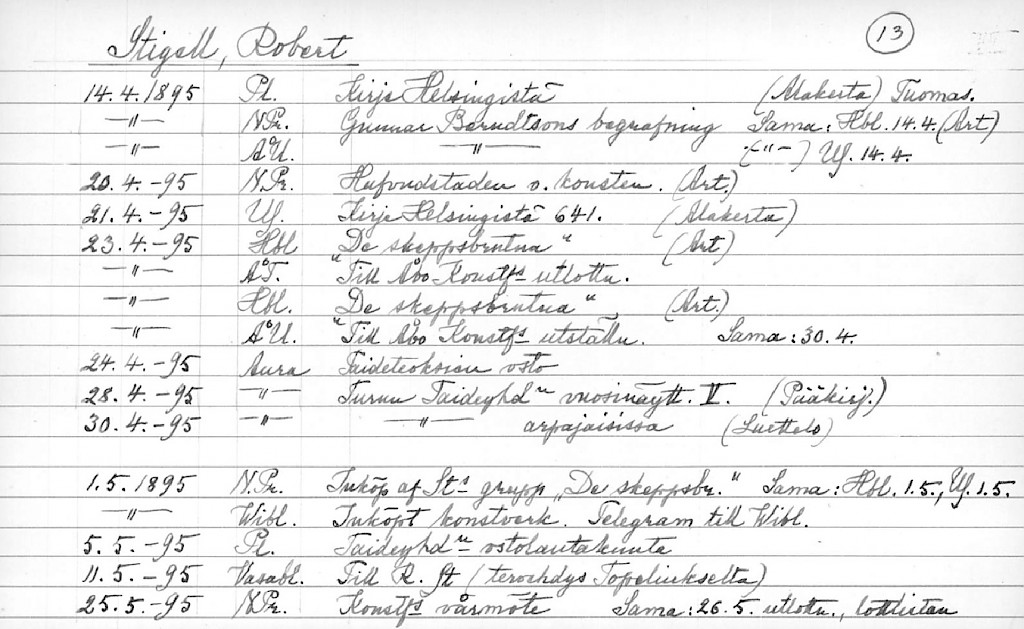 Stigell, Robert 13
14.4.1895 Pl. Kirje Helsingistä (Alakerta) Tuomas.
—"— N.Pr. Gunnar Berndtsons begrafning Sama: Hbl. 14.4. (Art)
—"— Å.U. —"— (—"—) Uf. 14.4.
20.4.-95 N.Pr. Hufvudstaden o. konsten. (Art.)
21.4.-95 Uf. Kirje Helsingistä 641. (Alakerta)
23.4.-95 Hbl "De skeppsbrutna" (Art)
—"— Å.T. "Till Åbo Konstfs utlottn.
—"— Hbl. De skeppsbrutna" (Art.)
—"— Å.U. "Till Åbo Konstfs utställn. Sama: 30.4.
24.4.-95 Aura Taideteoksien osto
28.4.-95 —"— Turun Taideyhdn vuosinäytt. V. (Pääkirj.)
30.4.-95 —"— —"— arpajaisissa (Luettelo)
1.5.1895 N.Pr. Inköp af Sts grupp „De skeppsbr." Sama: Hbl. 1.5., Uf. 1.5.
—"— Wibl. Inköpt konstverk. Telegram till Wibl.
5.5.-95 Pl. Taideyhdn ostolautakunta
11.5.-95 Vasabl. Till R. St (tervehdys Topeliukselta)
25.5.-95 N.Pr. Konstfs vårmöte Sama: 26.5. utlottn., lottlistan